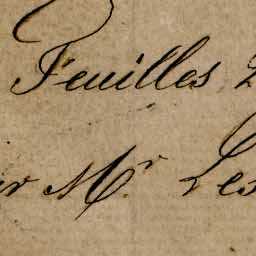 Feuilles 2
r Mr Les